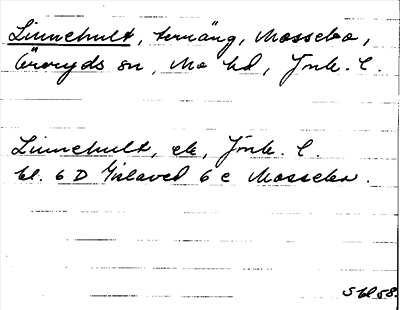 Linnehult, terräng, Mossebo,
Öreryds sn, Mo hd, Jönk. l.
Linnehult, ek, Jönk. l.
bl. 6 D Gislaved 6 c Mossebo.
S bl 58.